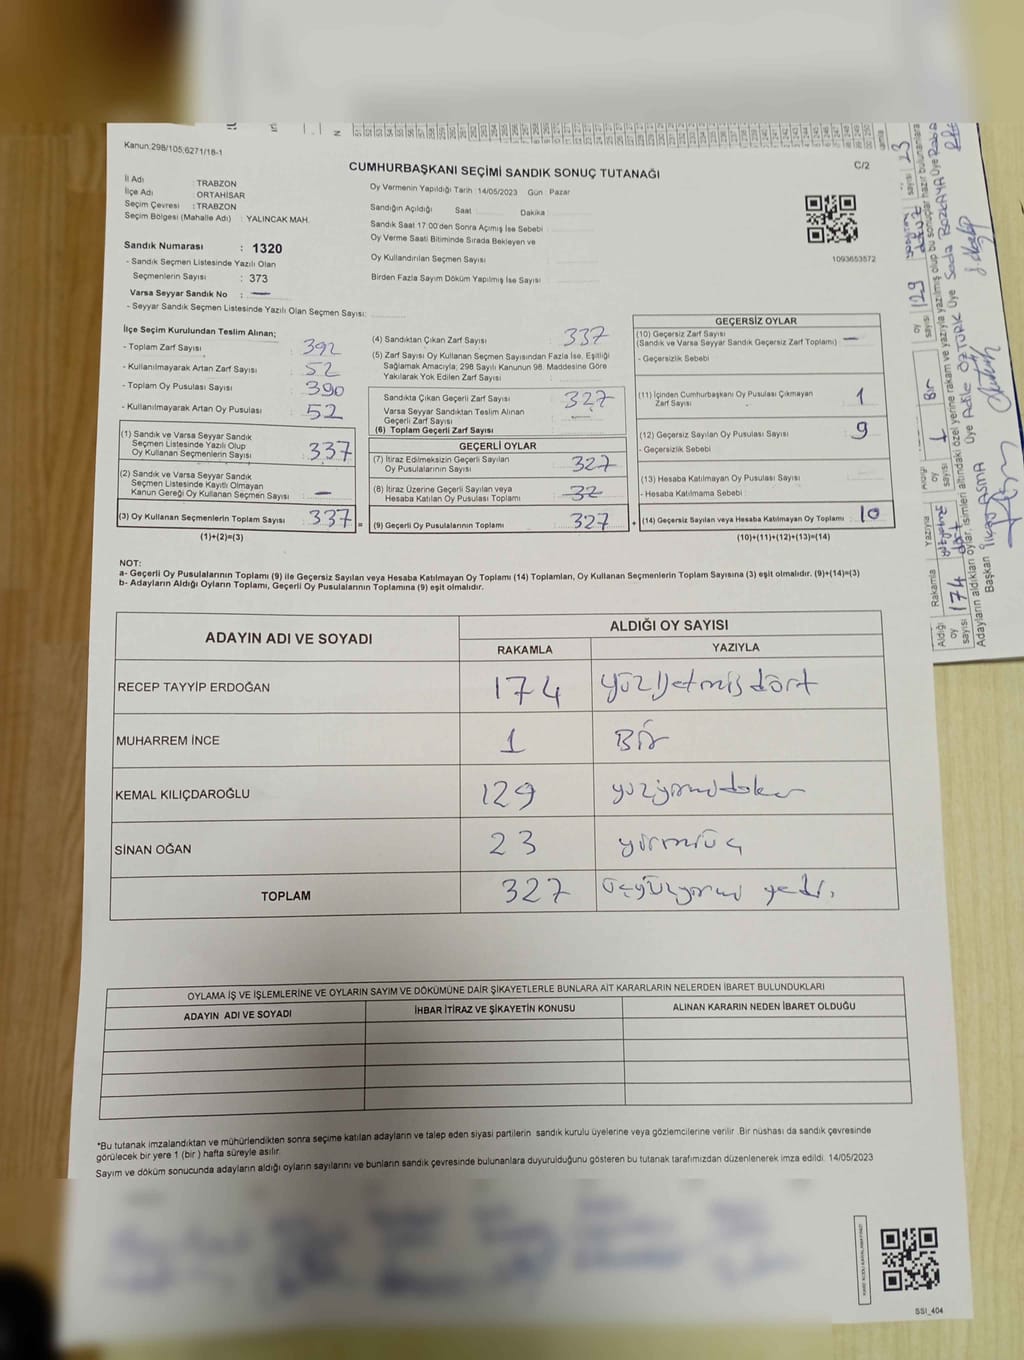 Kanun:298/105,6271/18-1
CUMHURBAŞKANI SEÇİMİ SANDIK SONUÇ TUTANAĞI
C/2
İl Adı : TRABZON
İlçe Adı : ORTAHİSAR
Seçim Çevresi : TRABZON
Seçim Bölgesi (Mahalle Adı) : YALINCAK MAH.
Sandık Numarası : 1320
- Sandık Seçmen Listesinde Yazılı Olan
Seçmenlerin Sayısı : 373
Varsa Seyyar Sandık No : —
- Seyyar Sandık Seçmen Listesinde Yazılı Olan Seçmen Sayısı:
Oy Vermenin Yapıldığı Tarih :14/05/2023 Gün : Pazar
Sandığın Açıldığı Saat Dakika
Sandık Saat 17:00'den Sonra Açımış İse Sebebi
Oy Verme Saati Bitiminde Sırada Bekleyen ve
Oy Kullandırılan Seçmen Sayısı
Birden Fazla Sayım Döküm Yapılmış İse Sayısı
1093653572
İlçe Seçim Kurulundan Teslim Alınan;
- Toplam Zarf Sayısı : 392
- Kullanılmayarak Artan Zarf Sayısı : 52
- Toplam Oy Pusulası Sayısı : 390
- Kullanılmayarak Artan Oy Pusulası : 52
(1) Sandık ve Varsa Seyyar Sandık
Seçmen Listesinde Yazılı Olup
Oy Kullanan Seçmenlerin Sayısı : 337
(2) Sandık ve Varsa Seyyar Sandık
Seçmen Listesinde Kayıtlı Olmayan
Kanun Gereği Oy Kullanan Seçmen Sayısı : —
(3) Oy Kullanan Seçmenlerin Toplam Sayısı : 337
(1)+(2)=(3)
(4) Sandıktan Çıkan Zarf Sayısı : 337
(5) Zarf Sayısı Oy Kullanan Seçmen Sayısından Fazla İse, Eşitliği
Sağlamak Amacıyla; 298 Sayılı Kanunun 98. Maddesine Göre
Yakılarak Yok Edilen Zarf Sayısı :
Sandıkta Çıkan Geçerli Zarf Sayısı : 327
Varsa Seyyar Sandıktan Teslim Alınan
Geçerli Zarf Sayısı :
(6) Toplam Geçerli Zarf Sayısı
GEÇERLİ OYLAR
(7) İtiraz Edilmeksizin Geçerli Sayılan
Oy Pusulalarının Sayısı : 327
(8) İtiraz Üzerine Geçerli Sayılan veya
Hesaba Katılan Oy Pusulası Toplamı : 32
= (9) Geçerli Oy Pusulalarının Toplamı : 327
GEÇERSİZ OYLAR
(10) Geçersiz Zarf Sayısı
(Sandık ve Varsa Seyyar Sandık Geçersiz Zarf Toplamı) : —
- Geçersizlik Sebebi
(11) İçinden Cumhurbaşkanı Oy Pusulası Çıkmayan
Zarf Sayısı : 1
(12) Geçersiz Sayılan Oy Pusulası Sayısı : 9
- Geçersizlik Sebebi
(13) Hesaba Katılmayan Oy Pusulası Sayısı :
- Hesaba Katılmama Sebebi :
+ (14) Geçersiz Sayılan veya Hesaba Katılmayan Oy Toplamı : 10
(10)+(11)+(12)+(13)=(14)
NOT:
a- Geçerli Oy Pusulalarının Toplamı (9) ile Geçersiz Sayılan veya Hesaba Katılmayan Oy Toplamı (14) Toplamları, Oy Kullanan Seçmenlerin Toplam Sayısına (3) eşit olmalıdır. (9)+(14)=(3)
b- Adayların Aldığı Oyların Toplamı, Geçerli Oy Pusulalarının Toplamına (9) eşit olmalıdır.
ADAYIN ADI VE SOYADI
ALDIĞI OY SAYISI
RAKAMLA YAZIYLA
RECEP TAYYİP ERDOĞAN 174 yüzyetmişdört
MUHARREM İNCE 1 Bir
KEMAL KILIÇDAROĞLU 129 yüzyirmidokuz
SİNAN OĞAN 23 yirmiüç
TOPLAM 327 üçyüzyirmi yedi.
OYLAMA İŞ VE İŞLEMLERİNE VE OYLARIN SAYIM VE DÖKÜMÜNE DAİR ŞİKAYETLERLE BUNLARA AİT KARARLARIN NELERDEN İBARET BULUNDUKLARI
ADAYIN ADI VE SOYADI İHBAR İTİRAZ VE ŞİKAYETİN KONUSU ALINAN KARARIN NEDEN İBARET OLDUĞU
*Bu tutanak imzalandıktan ve mühürlendikten sonra seçime katılan adayların ve talep eden siyasi partilerin sandık kurulu üyelerine veya gözlemcilerine verilir .Bir nüshası da sandık çevresinde
görülecek bir yere 1 (bir ) hafta süreyle asılır.
Sayım ve döküm sonucunda adayların aldığı oyların sayılarını ve bunların sandık çevresinde bulunanlara duyurulduğunu gösteren bu tutanak tarafımızdan düzenlenerek imza edildi. 14/05/2023
SSI_404
Aldığı oy sayısı Rakamla 174 Yazıyla yüzyetmiş dört
Aldığı oy sayısı 1 Bir
oy sayısı 129
sayısı 23
Adayların aldıkları oylar, isimleri altındaki özel yerine rakam ve yazıyla yazılmış olup bu sonuçlar hazır bulunanlara
Başkan İlkay ASMA Üye Adile ÖZTÜRK Üye Seda BOZKAYA Üye